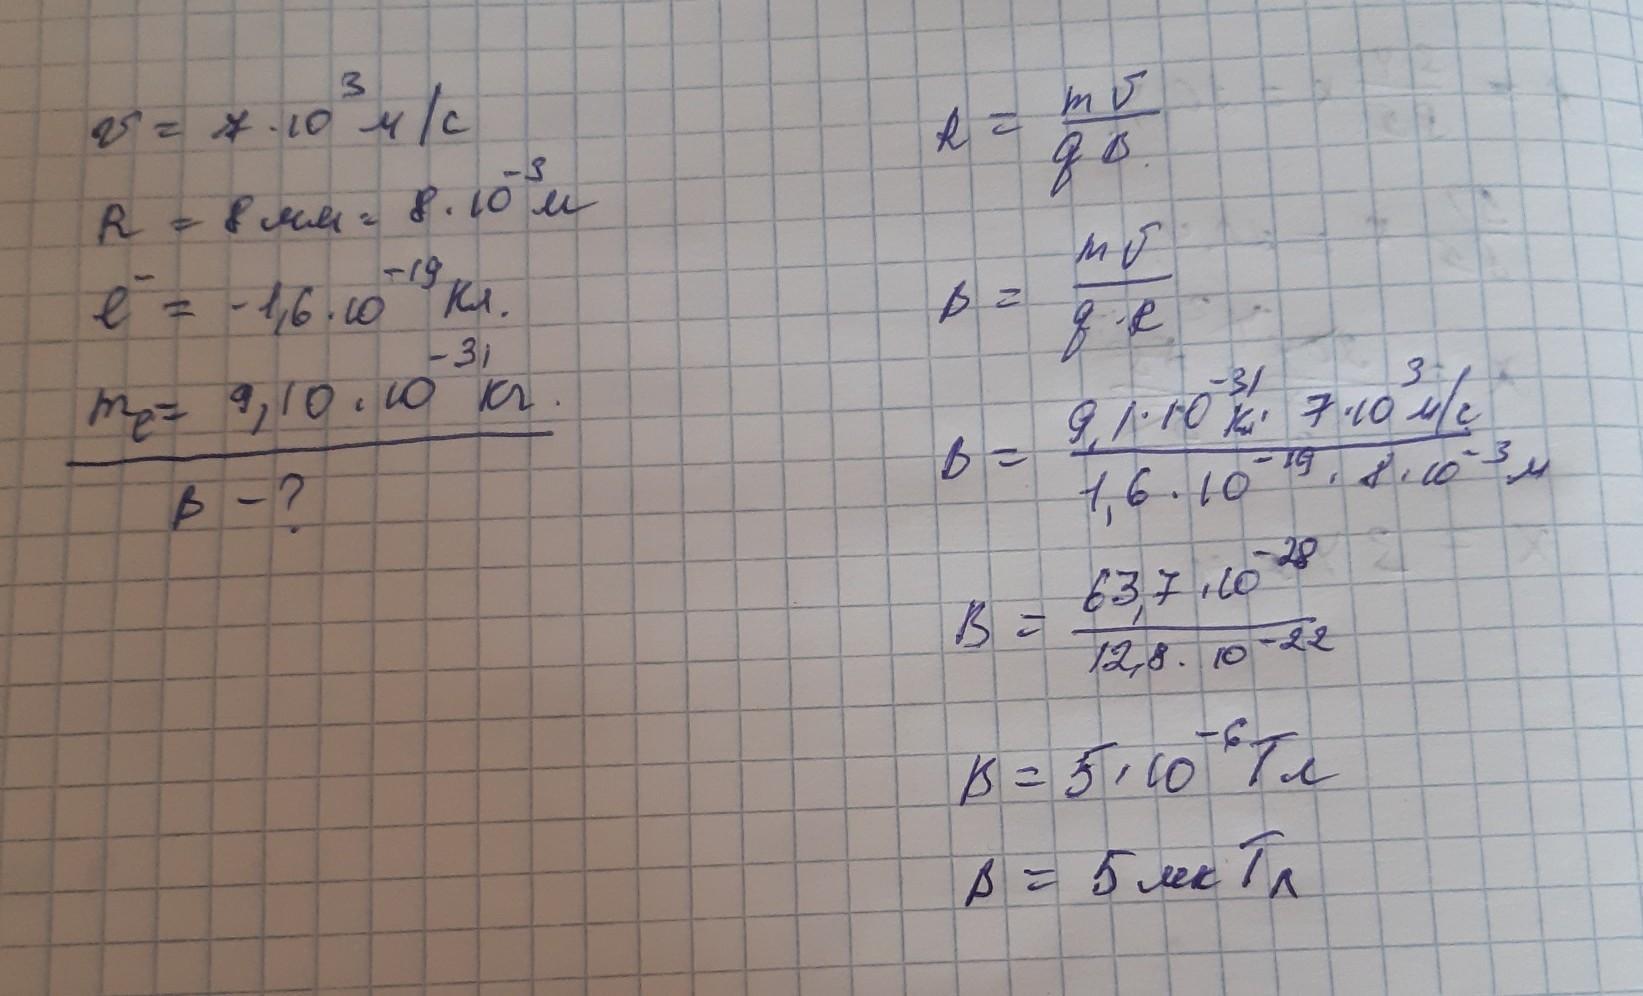 v = 7·10³ м/с
R = 8 мм = 8·10⁻³ м
e⁻ = -1,6·10⁻¹⁹ Кл.
mₑ = 9,10·10⁻³¹ кг.
B - ?
R = mv / qB
B = mv / q·R
B = 9,1·10⁻³¹ кг· 7·10³ м/с / 1,6·10⁻¹⁹·8·10⁻³ м
B = 63,7·10⁻²⁸ / 12,8·10⁻²²
B = 5·10⁻⁶ Тл
B = 5 мк Тл